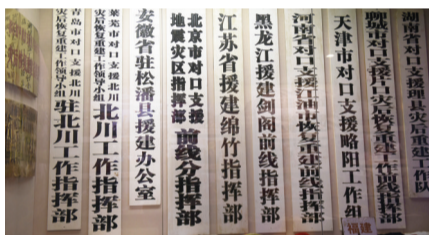 青岛市对口支援北川
灾后恢复重建工作领导小组
驻北川工作指挥部
莱芜市对口支援北川
灾后恢复重建工作领导小组
北川工作指挥部
安徽省驻松潘县援建办公室
北京市对口支援
地震灾区指挥部
前线分指挥部
江苏省援建绵竹指挥部
黑龙江援建剑阁前线指挥部
河南省对口支援江油市恢复重建前线指挥部
天津市对口支援略阳工作组
聊城市对口支援
灾后恢复重建工作指挥部
湖南省对口支援理县灾后恢复重建工作队
福建